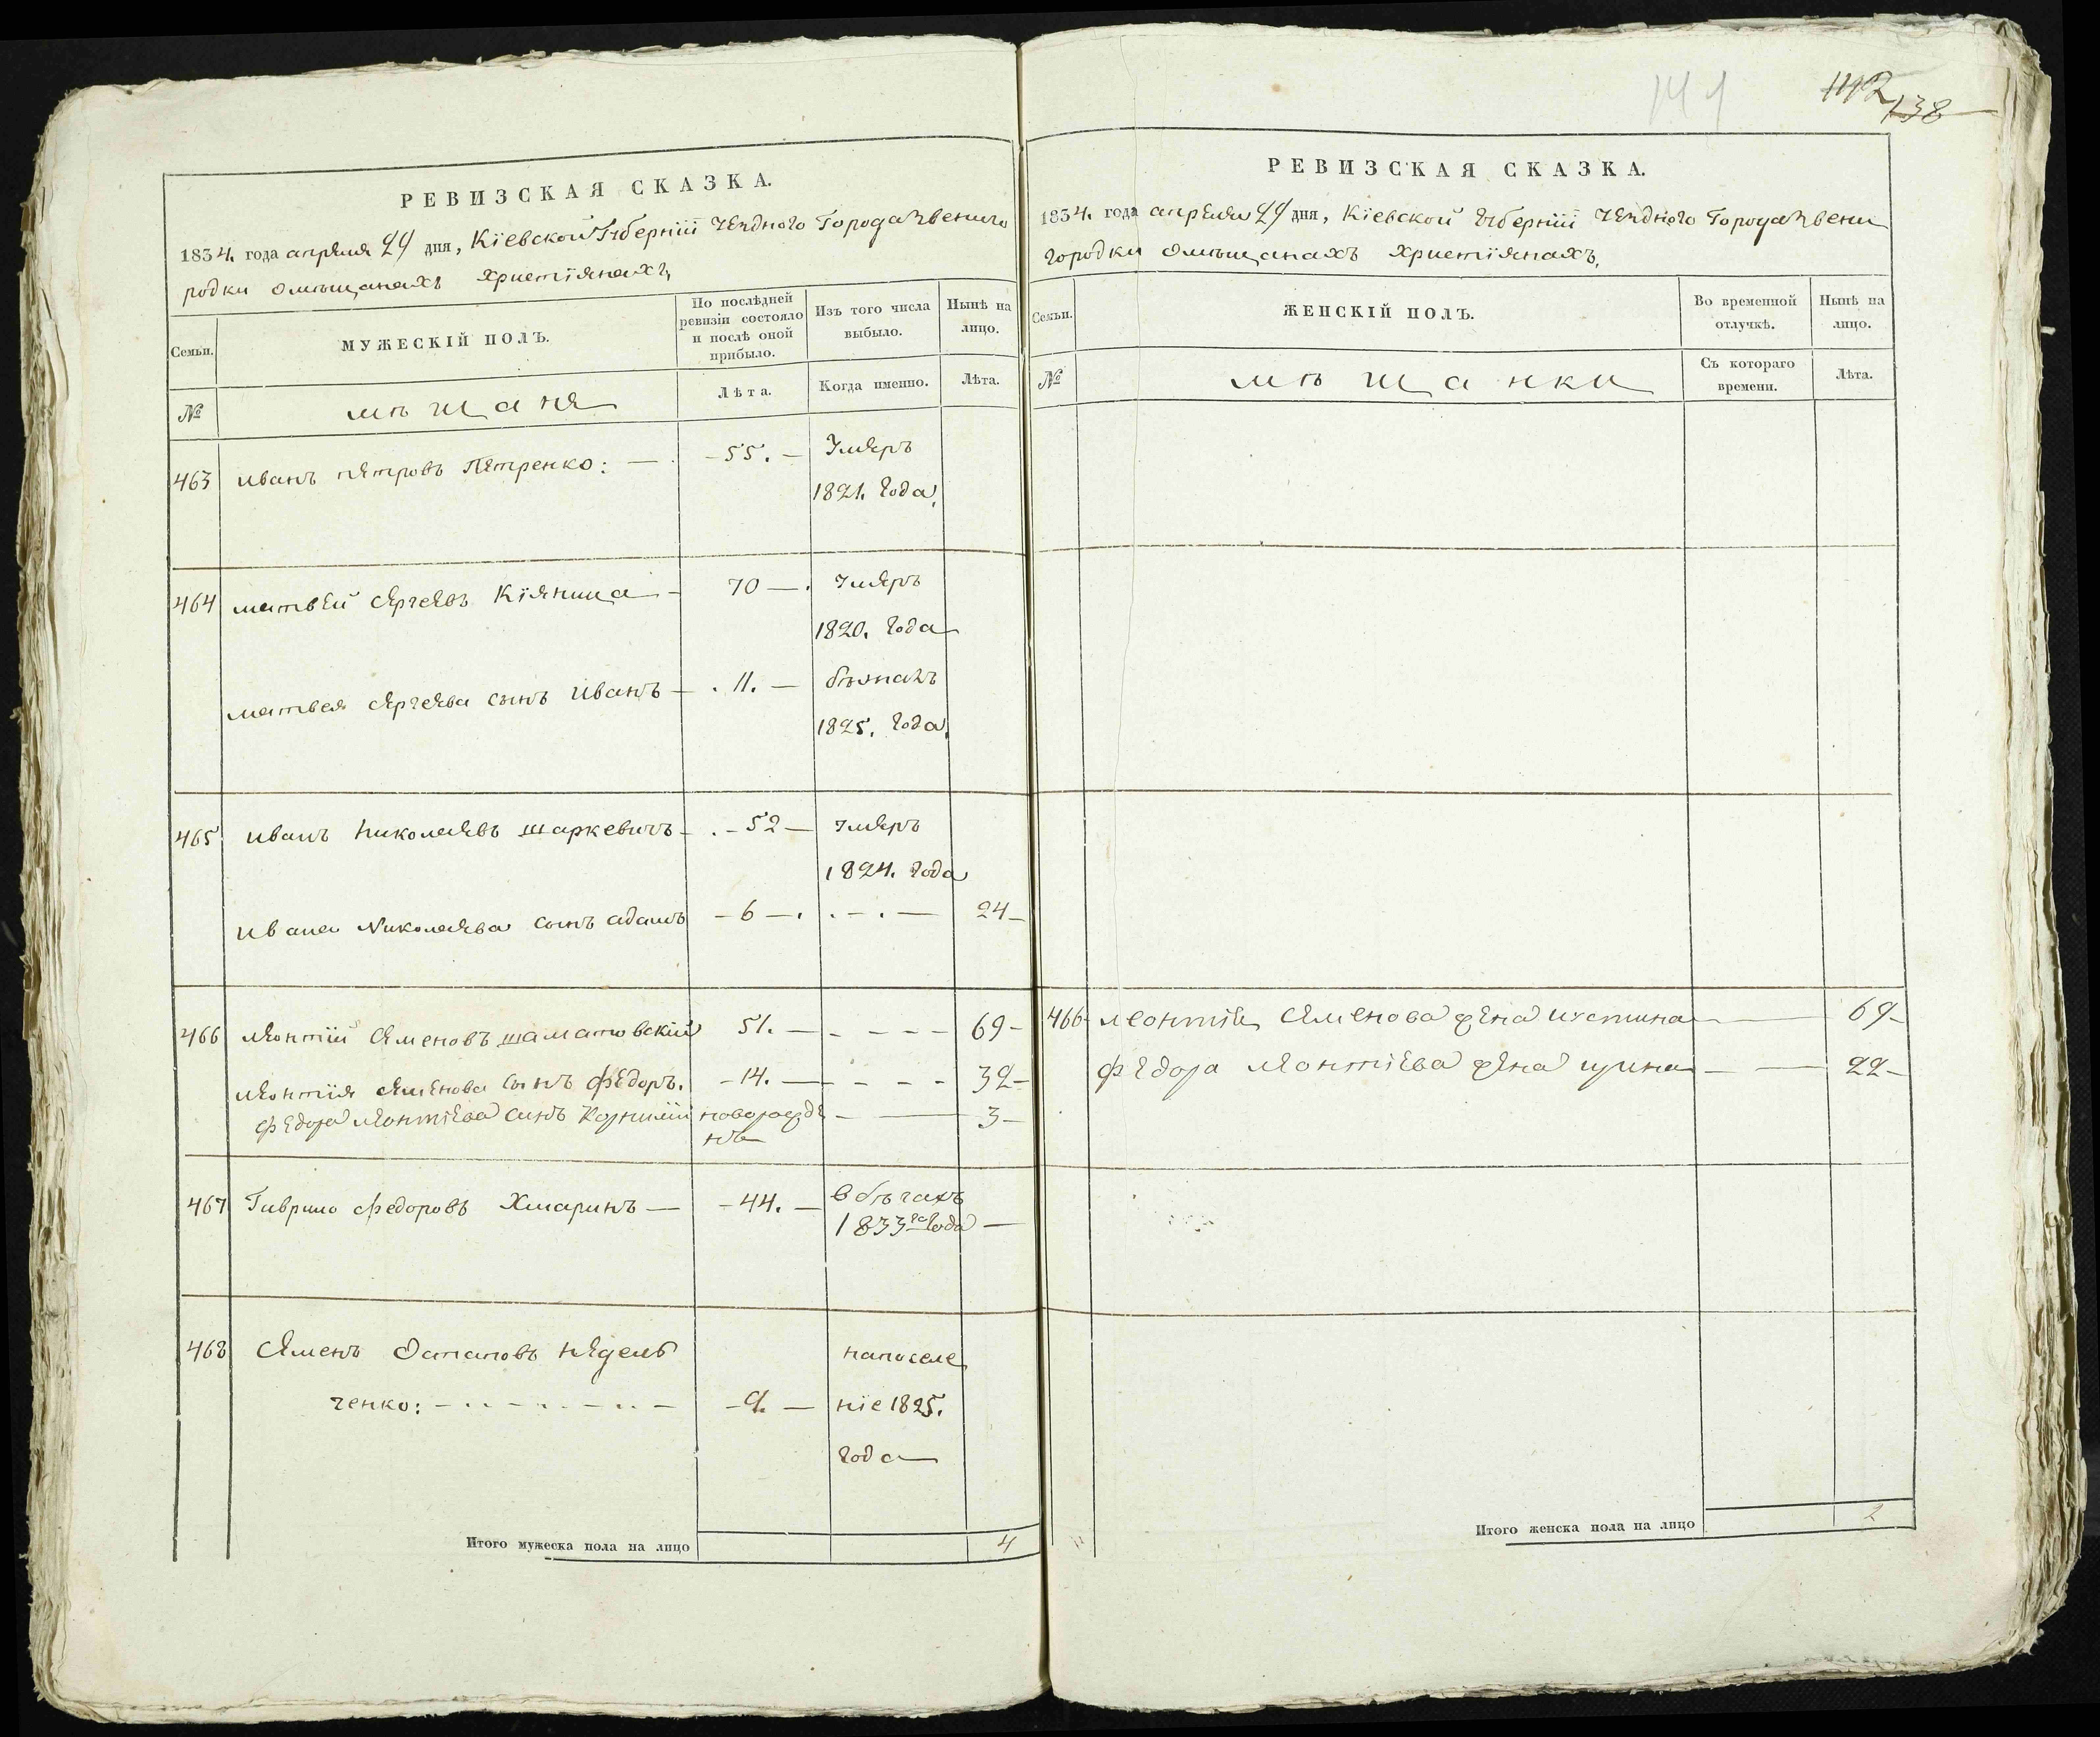 141
142
138
РЕВИЗСКАЯ СКАЗКА.
1834. года апреля 29 дня, Кіевской Губерніи Уезднаго Города Звениго
родки омѣщанахъ христіянахъ,
Семьи.
МУЖЕСКІЙ ПОЛЪ.
По послѣдней
ревизіи состояло
и послѣ оной
прибыло.
Изъ того числа
выбыло.
Нынѣ на
лицо.
№
мѣщаня
Лѣта.
Когда именно.
Лѣта.
463 иванъ петровъ Петренко: — - 55. - Умеръ
1821. года,
464 матвей сергеевъ Кіяница - 70 - Умеръ
1820. года
матвея сергеева сынъ Иванъ - 11. - бѣжалъ
1825. года,
465 иванъ николаевъ шаркевичъ - 52 - умеръ
1824. года
ивана Николаева сынъ адамъ - 6 - . - . — 24 -
466 леонтій семеновъ шаматовскій 51. — - - - - 69 -
леонтія семенова сынъ федоръ. - 14. — - - - - 32 -
федора леонтіева синъ Корнилій новорожде — 3 -
нъ
467 Гаврило федоровъ Хмаринъ — - 44. — в бѣгахъ
1833го года —
468 семенъ Остаповъ недель напоселе
ченко: - .. - .. - .. - - 9. — ніе 1825.
года
Итого мужеска пола на лицо 4
РЕВИЗСКАЯ СКАЗКА.
1834. года апреля 29 дня, Кіевской Губерніи Уезднаго Города Звени
городки омѣщанахъ христіянахъ,
Семьи.
ЖЕНСКІЙ ПОЛЪ.
Во временной
отлучкѣ.
Нынѣ на
лицо.
№
мѣщанки
Съ котораго
времени.
Лѣта.
466 леонтія семенова жена иустина — 69 -
федора леонтіева жена ирина — — 22 -
Итого женска пола на лицо 2